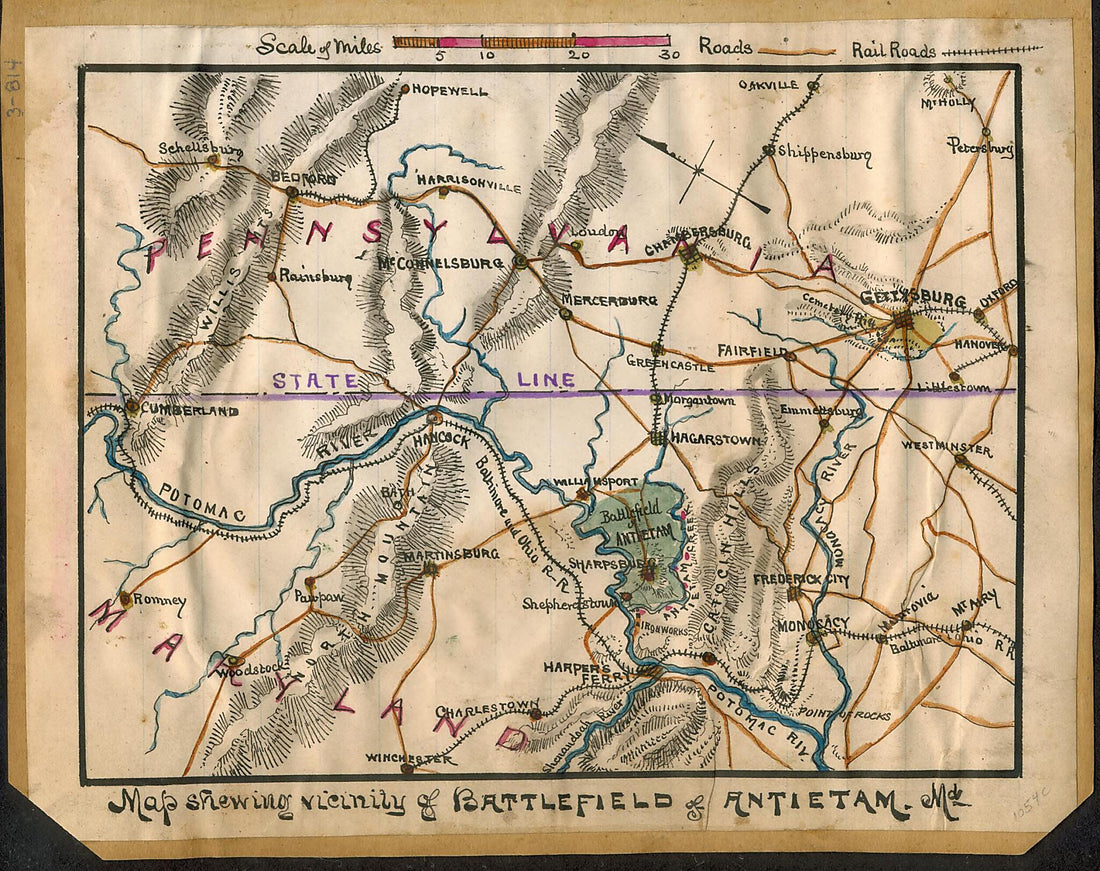 Scale of Miles 5 10 20 30 Roads Rail Roads
3-814
HOPEWELL
OAKVILLE
Mt HOLLY
Schellsburg
Shippensburg
Petersburg
BEDFORD
HARRISONVILLE
PENNSYLVANIA
Loudon
CHAMBERSBURG
McCONNELSBURG
Rainsburg
WILLIS MTS
MERCERBURG
GETTYSBURG
OXFORD
Cemetery
GREENCASTLE
FAIRFIELD
HANOVER
Littlestown
STATE LINE
CUMBERLAND
Morgantown
Emmettsburg
HANCOCK
HAGARSTOWN
WESTMINSTER
POTOMAC RIVER
BATH
Baltimore and Ohio R.R
WILLIAMSPORT
MONOCACY RIVER
Battlefield
of
ANTIETAM
ANTIETAM CREEK
CATOCIN HILLS
NORTH MOUNTAIN
MARTINSBURG
SHARPSBURG
FREDERICK CITY
Romney
Pawpaw
Shepherdstown
IRONWORKS
MONOCACY
Monrovia
Mt AIRY
Baltimore
R R
MARYLAND
Woodstock
HARPERS
FERRY
CHARLESTOWN
POTOMAC RIV.
POINT OF ROCKS
Shenandoah River
WINCHESTER
Map shewing vicinity of BATTLEFIELD of ANTIETAM. Md
1054c